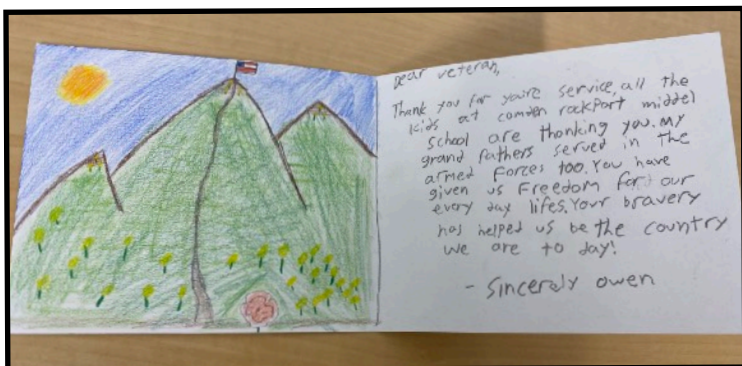 Dear veteran,
Thank you for youre service, all the
kids at comden rockport middel
school are thonking you. My
grand fathers served in the
armed Forces too. You have
given us Freedom for our
every day lifes. Your bravery
has helped us be the country
we are to day!
- Sincerely owen